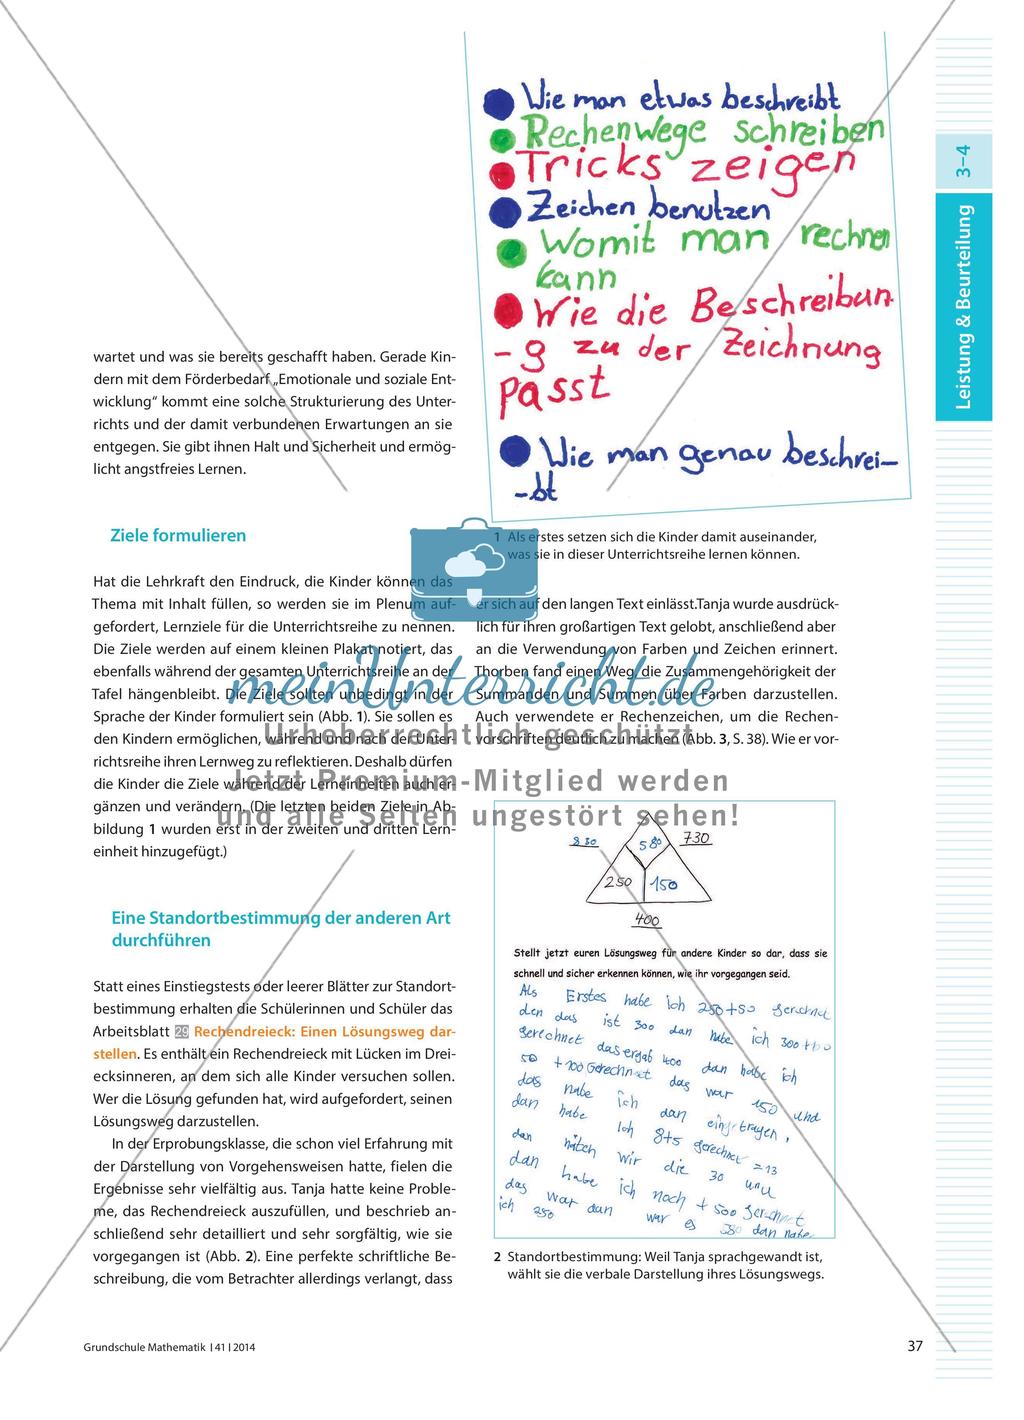 Wie man etwas beschreibt
Rechenwege schreiben
Tricks zeigen
Zeichen benutzen
Womit man rechnen
kann
Wie die Beschreibun-
-g zu der Zeichnung
passt
Wie man genau beschrei-
-bt
3–4
Leistung & Beurteilung
wartet und was sie bereits geschafft haben. Gerade Kin-
dern mit dem Förderbedarf „Emotionale und soziale Ent-
wicklung“ kommt eine solche Strukturierung des Unter-
richts und der damit verbundenen Erwartungen an sie
entgegen. Sie gibt ihnen Halt und Sicherheit und ermög-
licht angstfreies Lernen.
Ziele formulieren
Hat die Lehrkraft den Eindruck, die Kinder können das
Thema mit Inhalt füllen, so werden sie im Plenum auf-
gefordert, Lernziele für die Unterrichtsreihe zu nennen.
Die Ziele werden auf einem kleinen Plakat notiert, das
ebenfalls während der gesamten Unterrichtsreihe an der
Tafel hängenbleibt. Die Ziele sollten unbedingt in der
Sprache der Kinder formuliert sein (Abb. 1). Sie sollen es
den Kindern ermöglichen, während und nach der Unter-
richtsreihe ihren Lernweg zu reflektieren. Deshalb dürfen
die Kinder die Ziele während der Lerneinheiten auch er-
gänzen und verändern. (Die letzten beiden Ziele in Ab-
bildung 1 wurden erst in der zweiten und dritten Lern-
einheit hinzugefügt.)
Eine Standortbestimmung der anderen Art
durchführen
Statt eines Einstiegstests oder leerer Blätter zur Standort-
bestimmung erhalten die Schülerinnen und Schüler das
Arbeitsblatt 29 Rechendreieck: Einen Lösungsweg dar-
stellen. Es enthält ein Rechendreieck mit Lücken im Drei-
ecksinneren, an dem sich alle Kinder versuchen sollen.
Wer die Lösung gefunden hat, wird aufgefordert, seinen
Lösungsweg darzustellen.
In der Erprobungsklasse, die schon viel Erfahrung mit
der Darstellung von Vorgehensweisen hatte, fielen die
Ergebnisse sehr vielfältig aus. Tanja hatte keine Proble-
me, das Rechendreieck auszufüllen, und beschrieb an-
schließend sehr detailliert und sehr sorgfältig, wie sie
vorgegangen ist (Abb. 2). Eine perfekte schriftliche Be-
schreibung, die vom Betrachter allerdings verlangt, dass
1 Als erstes setzen sich die Kinder damit auseinander,
was sie in dieser Unterrichtsreihe lernen können.
er sich auf den langen Text einlässt.Tanja wurde ausdrück-
lich für ihren großartigen Text gelobt, anschließend aber
an die Verwendung von Farben und Zeichen erinnert.
Thorben fand einen Weg, die Zusammengehörigkeit der
Summanden und Summen über Farben darzustellen.
Auch verwendete er Rechenzeichen, um die Rechen-
vorschriften deutlich zu machen (Abb. 3, S. 38). Wie er vor-
meinUnterricht.de
Urheberrechtlich geschützt
Jetzt Premium-Mitglied werden
und alle Seiten ungestört sehen!
830 580 730
250 150
400
Stellt jetzt euren Lösungsweg für andere Kinder so dar, dass sie
schnell und sicher erkennen können, wie ihr vorgegangen seid.
Als Erstes habe ich 250+50 gerechnet
den das ist 300 dan habe ich 300+100
gerechnet das ergab 400 dan habe ich
50 +100 gerechnet das war 150 und
das habe ich dan eingetragen,
dan habe ich 8+5 gerechnet =13
dan häten wir die 30 und
dan habe ich noch + 500 gerechnet
das war dan war es 580 dan habe
ich 250
2 Standortbestimmung: Weil Tanja sprachgewandt ist,
wählt sie die verbale Darstellung ihres Lösungswegs.
Grundschule Mathematik | 41 | 2014
37